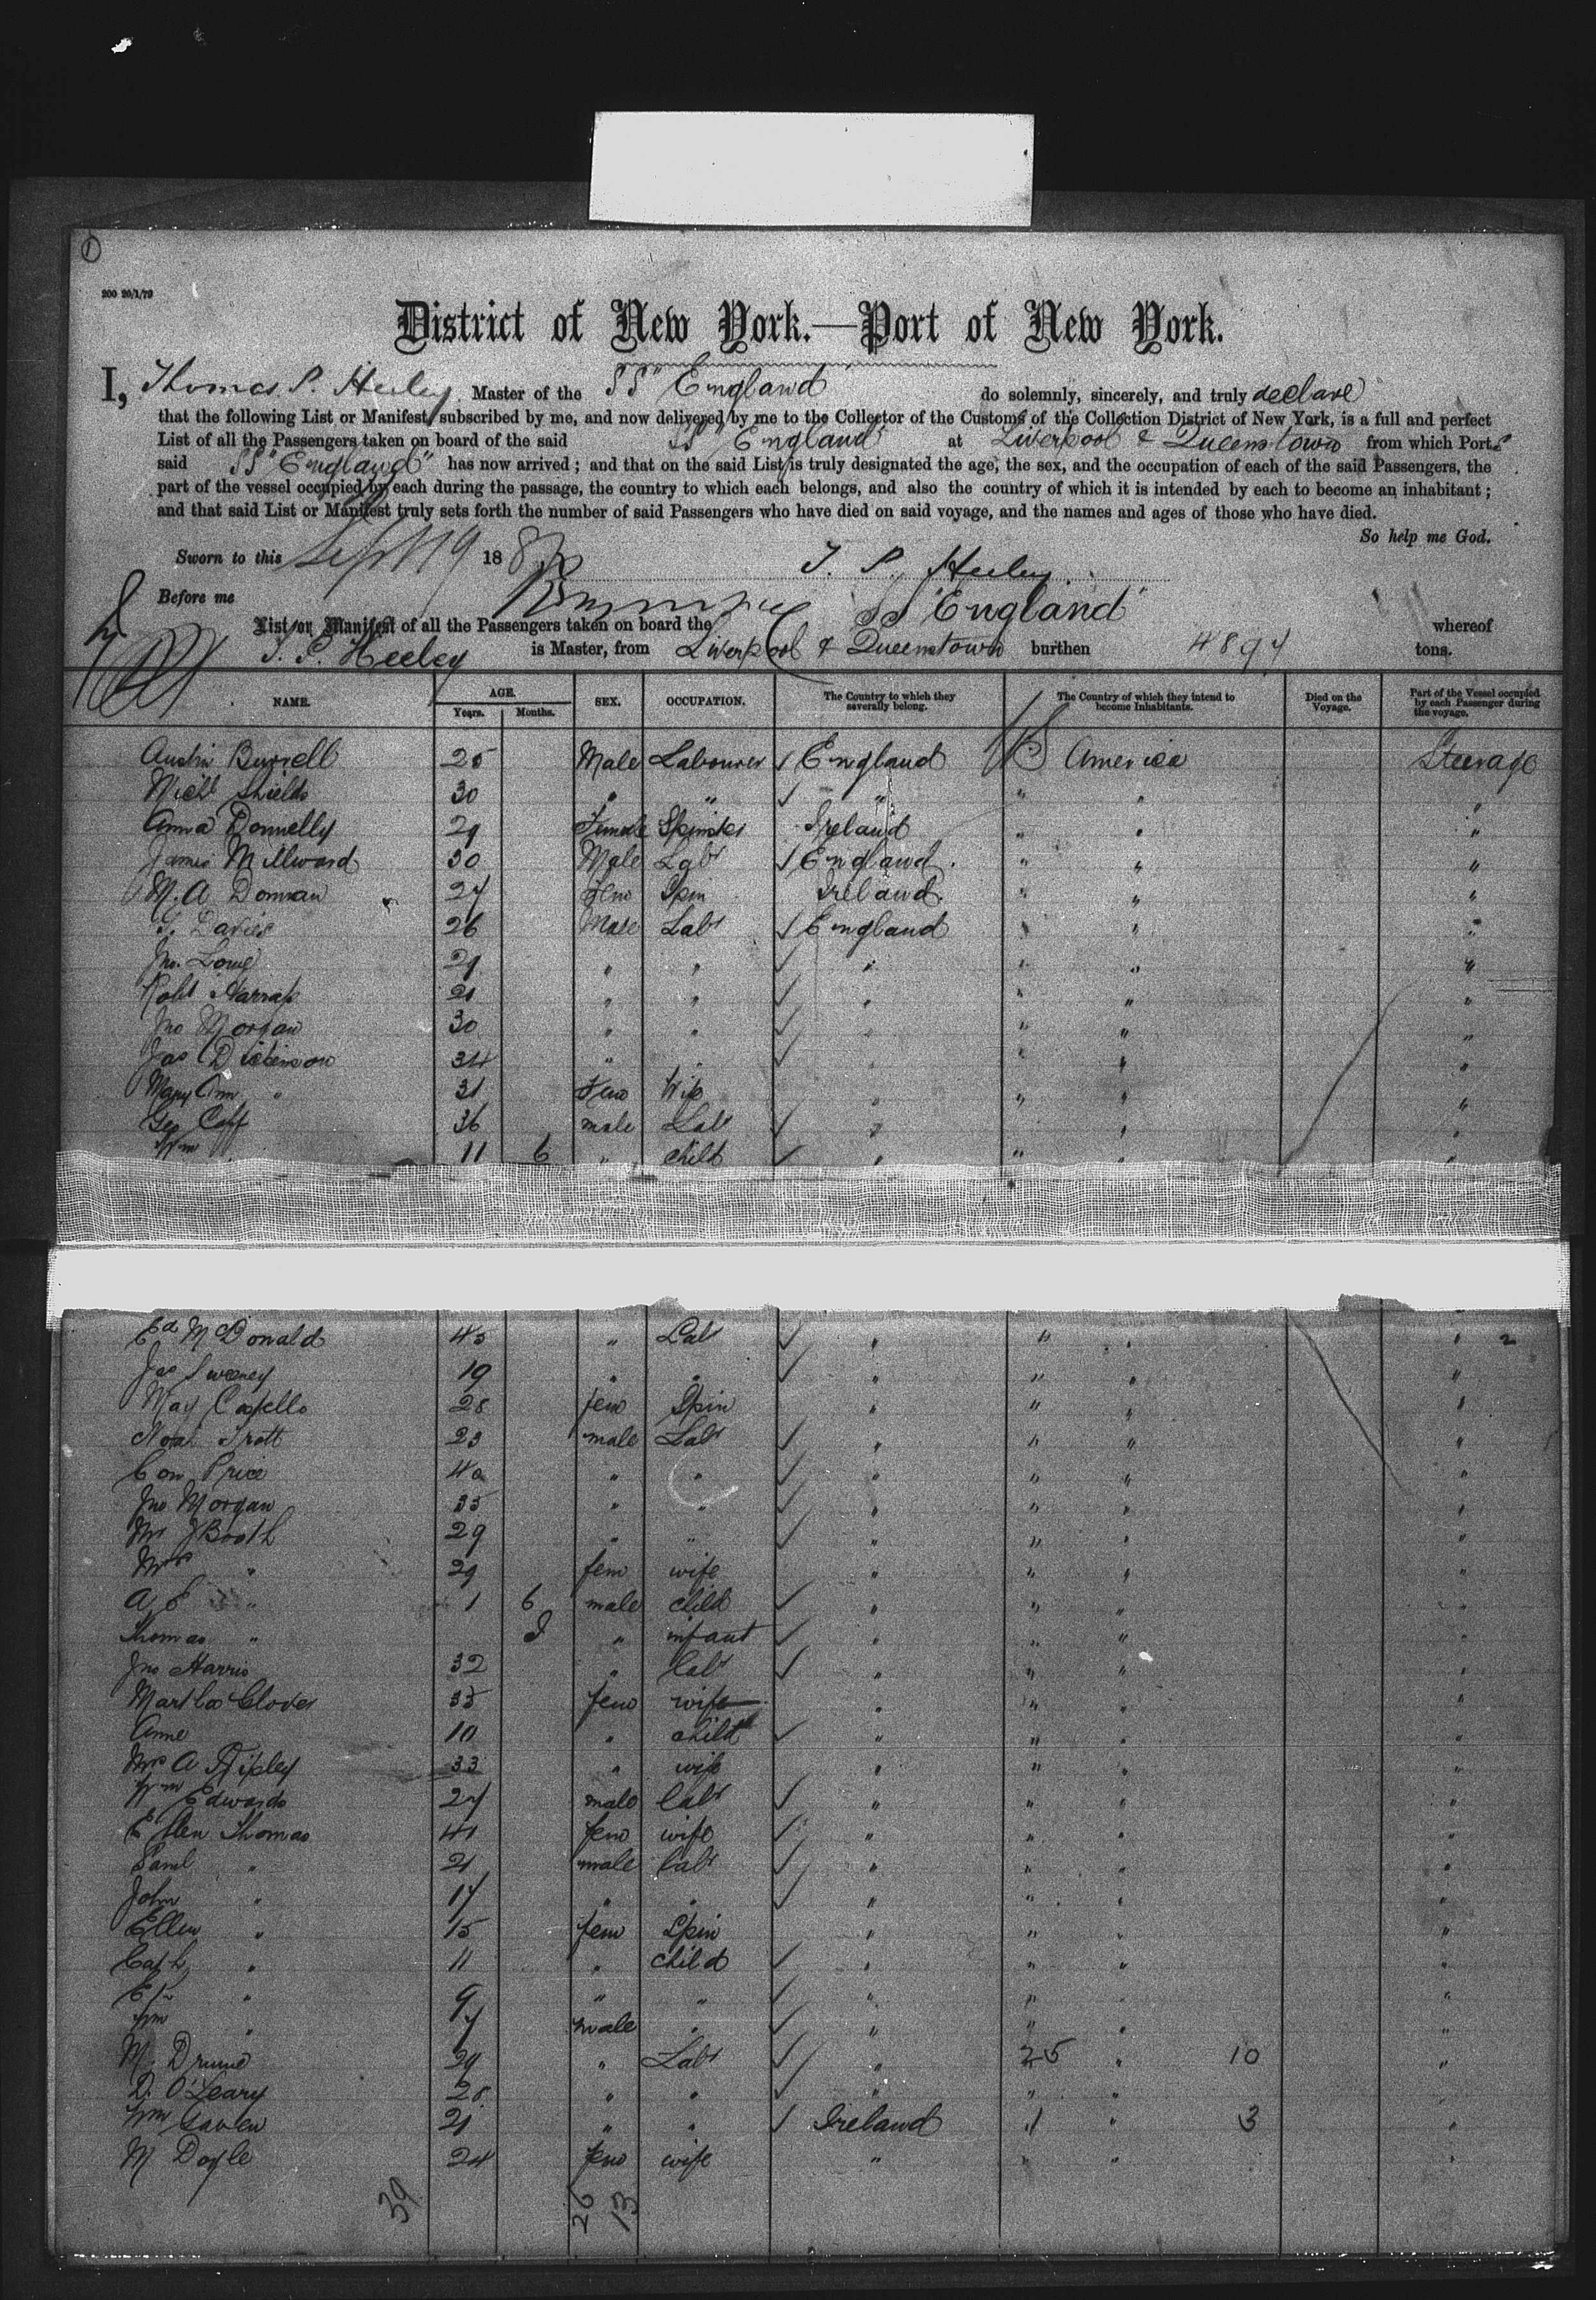 1
200 20/1/79
District of New York.—Port of New York.
I, Thomas P. Heeley Master of the SS "England" do solemnly, sincerely, and truly declare
that the following List or Manifest, subscribed by me, and now delivered by me to the Collector of the Customs of the Collection District of New York, is a full and perfect
List of all the Passengers taken on board of the said SS "England" at Liverpool & Queenstown from which Ports
said SS "England" has now arrived; and that on the said List is truly designated the age, the sex, and the occupation of each of the said Passengers, the
part of the vessel occupied by each during the passage, the country to which each belongs, and also the country of which it is intended by each to become an inhabitant;
and that said List or Manifest truly sets forth the number of said Passengers who have died on said voyage, and the names and ages of those who have died.
So help me God.
Sworn to this Sept 19 188 T. P. Heeley
Before me
List or Manifest of all the Passengers taken on board the SS "England" whereof
T. P. Heeley is Master, from Liverpool & Queenstown burthen 4897 tons.
NAME. AGE. Years. Months. SEX. OCCUPATION. The Country to which they severally belong. The Country of which they intend to become Inhabitants. Died on the Voyage. Part of the Vessel occupied by each Passenger during the voyage.
Austin Burrell 25 Male Labourer ✓ England US America Steerage
Michl Shields 30 " " ✓ " " " "
Anna Donnelly 29 Female Spinster Ireland " " "
James Millward 30 Male Labr ✓ England " " "
M. A. Donnan 27 Fem Spin Ireland " " "
T. Davies 26 Male Labr ✓ England " " "
Jno. Long 29 " " ✓ " " " "
Robt Harrap 21 " " ✓ " " " "
Jno Morgan 30 " " ✓ " " " "
Jas Dickinson 34 " " ✓ " " " "
Mary Ann " 31 Fem Wife " " " "
Geo 36 male Labr ✓ " " "
Wm 11 6 " child ✓ " " " "
Ed McDonald 45 " Labr ✓ " " " " 2
Jas Sweeney 19 " " ✓ " " " "
May Capello 28 fem Spin " " " "
Noah Trott 23 male Labr ✓ " " " "
Con Price 40 " " ✓ " " " "
Jno Morgan 35 " " ✓ " " " "
Mr J Booth 29 " " ✓ " " " "
Mrs " 29 fem wife " " " "
A E " 1 6 male child ✓ " " " "
Thomas " " infant ✓ " " " "
Jno Harris 32 " labr ✓ " " " "
Martha Glover 33 fem wife " " " "
Anne 10 " child ✓ " " " "
Mrs A Ripley 33 " wife " " " "
Wm Edwards 27 male labr ✓ " " " "
Ellen Thomas 41 fem wife ✓ " " " "
Saml " 21 male labr ✓ " " " "
John " 17 " " ✓ " " " "
Ellen " 15 fem Spin " " " "
Cath " 11 " child ✓ " " " "
" 9 " " ✓ " " " "
Wm " 7 male " ✓ " " " "
M. 29 " Labr ✓ " 25 " 10 "
D. O'Leary 28 " " ✓ " " " "
Wm Gaven 21 " " ✓ Ireland " " 3 "
M Doyle 24 fem wife " " " "
39 26 13